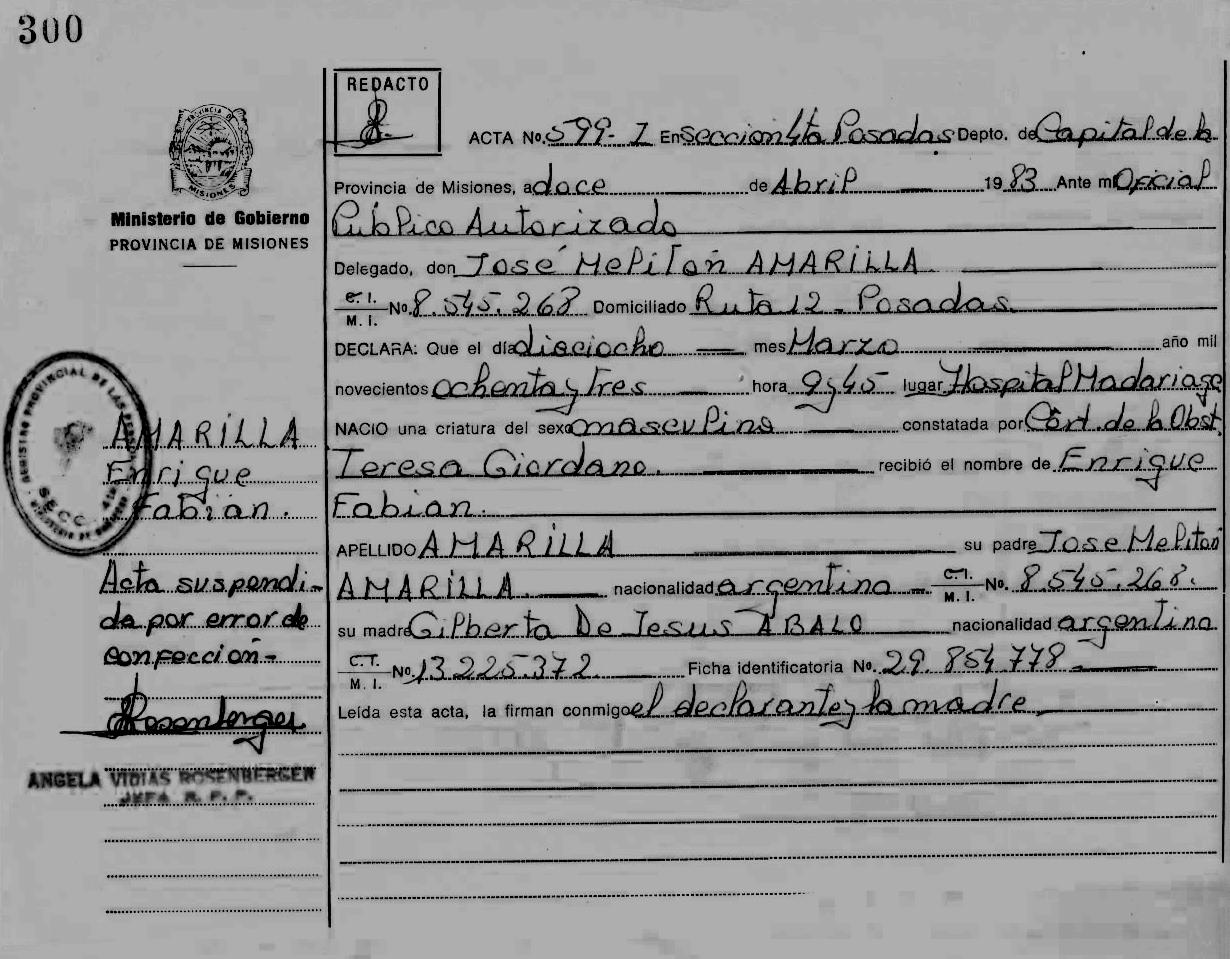 300
REDACTO
PROVINCIA DE
MISIONES
Ministerio de Gobierno
PROVINCIA DE MISIONES
ACTA No. 599-I En Seccion 4ta Posadas Depto. de Capital de la
Provincia de Misiones, a doce de Abril 1983 Ante mi Oficial
Público Autorizado
Delegado, don José Melitón AMARILLA
C. I. M. I. No. 8.545.268 Domiciliado Ruta 12 - Posadas
DECLARA: Que el día dieciocho mes Marzo año mil
novecientos ochenta y tres hora 9 y 45 lugar Hospital Madariaga
NACIO una criatura del sexo masculino constatada por Cert. de la Obst.
Teresa Giordano. recibió el nombre de Enrique
Fabian.
APELLIDO AMARILLA su padre Jose Melitón
AMARILLA. nacionalidad argentino C.I. M. I. No. 8.545.268.
su madre Gilberta De Jesus ABALO nacionalidad argentina
C.T. M. I. No. 13.225.372. Ficha identificatoria No. 29.854.778
Leída esta acta, la firman conmigo el declarante y la madre
REGISTRO PROVINCIAL DE LAS
SECC. 4ta
AMARILLA
Enrique
Fabian.
Acta suspendi-
da por error de
confección-
Rosenberger
ANGELA VIDIAS ROSENBERGER
JEFA R. P. P.